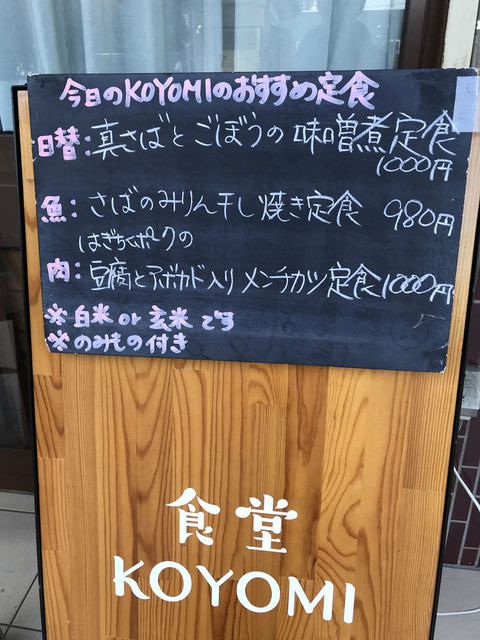 今日のKOYOMIのおすすめ定食
日替:真さばとごぼうの味噌煮定食
1000円
魚:さばのみりん干し焼き定食 980円
はぎちくポークの
肉:豆腐とアボカド入りメンチカツ定食1000円
※白米or玄米です
※のみもの付き
食堂
KOYOMI